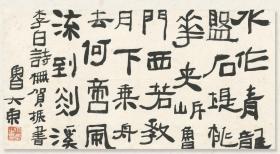 水作青龍
盤石堤桃
華夾岸魯
門西若教
月下乘舟
去何啻風
流到剡溪
李白詩橅賀振書
魯大東